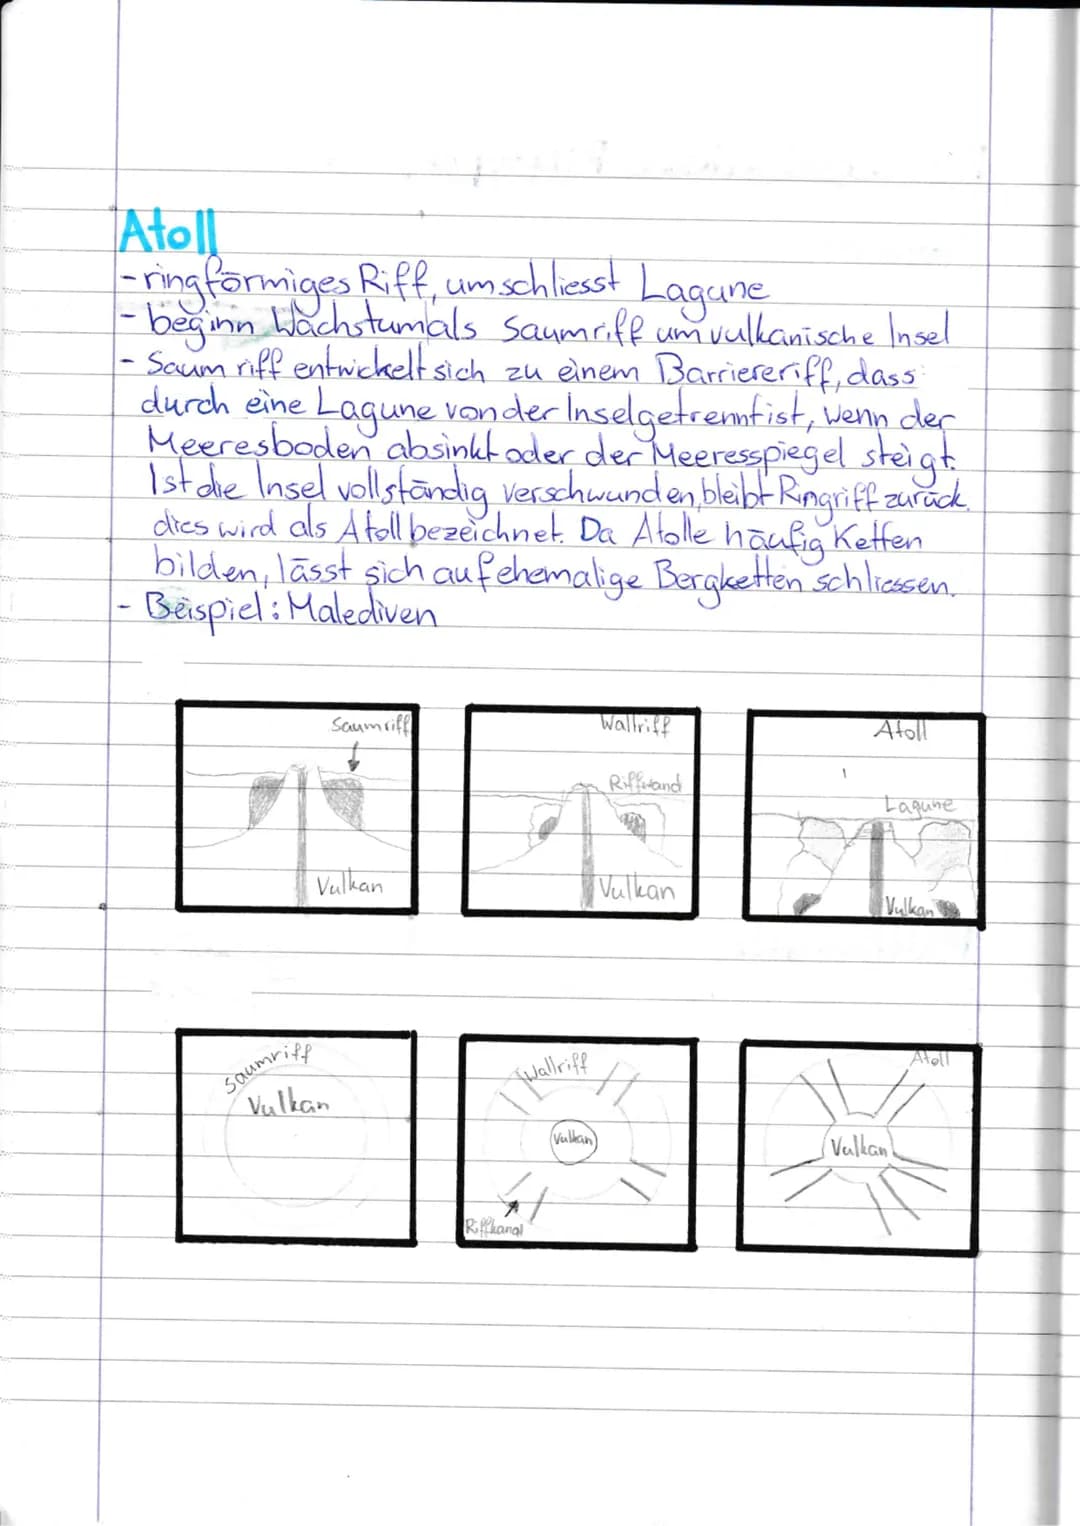 Atoll
- ringförmiges Riff, umschliesst Lagune
- beginn Wachstum als Saumriff um vulkanische Insel
- Saumriff entwickelt sich zu einem Barriereriff, dass
durch eine Lagune von der Insel getrennt ist, wenn der
Meeresboden absinkt oder der Meeresspiegel steigt.
Ist die Insel vollständig verschwunden, bleibt Ringriff zurück.
dies wird als Atoll bezeichnet. Da Atolle häufig Ketten
bilden, lässt sich auf ehemalige Bergketten schliessen.
- Beispiel: Malediven
Saumriff
Vulkan
Wallriff
Riffwand
Vulkan
Atoll
Lagune
Vulkan
Saumriff
Vulkan
Wallriff
Vulkan
Riffkanal
Atoll
Vulkan